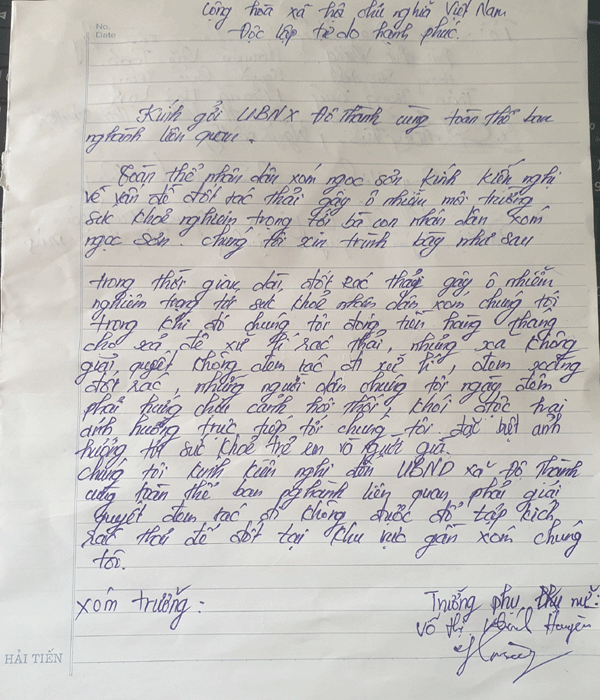 Cộng hòa xã hội chủ nghĩa Việt Nam
Độc lập tự do hạnh phúc.
No.
Date
Kính gởi UBNX Đô Thành cùng toàn thể ban
nghành liên quan.
Toàn thể nhân dân xóm ngọc sơn kính kiến nghị
về vấn đề đốt rác thải gây ô nhiễm môi trường
sức khoẻ nghiêm trọng tới bà con nhân dân xóm
ngọc sơn. chúng tôi xin trình bày như sau
trong thời gian dài, đốt rác thải gây ô nhiễm
nghiêm trọng tới sức khoẻ nhân dân xóm chúng tôi
trong khi đó chúng tôi đóng tiền hàng tháng
cho xã để xử lí rác thải, nhưng xã không
giải quyết không đem rác đi xử lí, đem xăng
đốt rác, những người dân chúng tôi ngày đêm
phải hứng chịu cảnh hôi thối khói độc hại
ảnh hưởng trực tiếp tới chúng tôi. đặc biệt ảnh
hưởng tới sức khoẻ trẻ em và người già.
chúng tôi kính kiến nghị đến UBND xã Đô Thành
cùng toàn thể ban nghành liên quan phải giải
quyết đem rác đi không được đổ tập kích
rác thải để đốt tại khu vực gần xóm chúng
tôi.
xóm trưởng:
Trưởng phụ nữ:
Võ thị Khánh Huyền
HẢI TIẾN